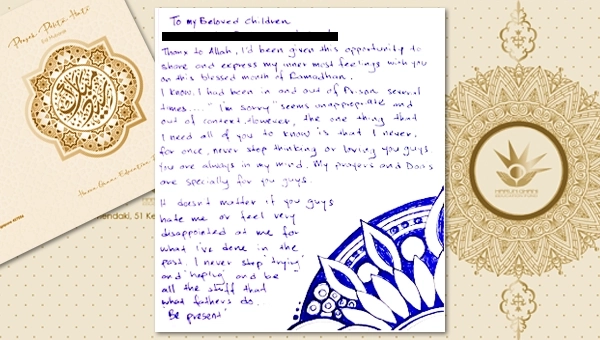 To my Beloved children
Thanx to Allah, I'd been given this opportunity to
share and express my inner most feelings with you
on this blessed month of Ramadhan.
I know, I had been in and out of Prison several
times..... "I'm sorry" seems unappropriate and
out of context. However, the one thing that
I need all of you to know is that I never,
for once, never stop thinking or loving you guys
You are always in my mind. My prayers and Doas
are specially for you guys.
It doesn't matter if you guys
hate me or feel very
disappointed at me for
what I've done in the
past. I never stop 'trying'
and 'hoping' and be
all the stuff that
what fathers do.
'Be present'
51 Ke
HARUN GHANI